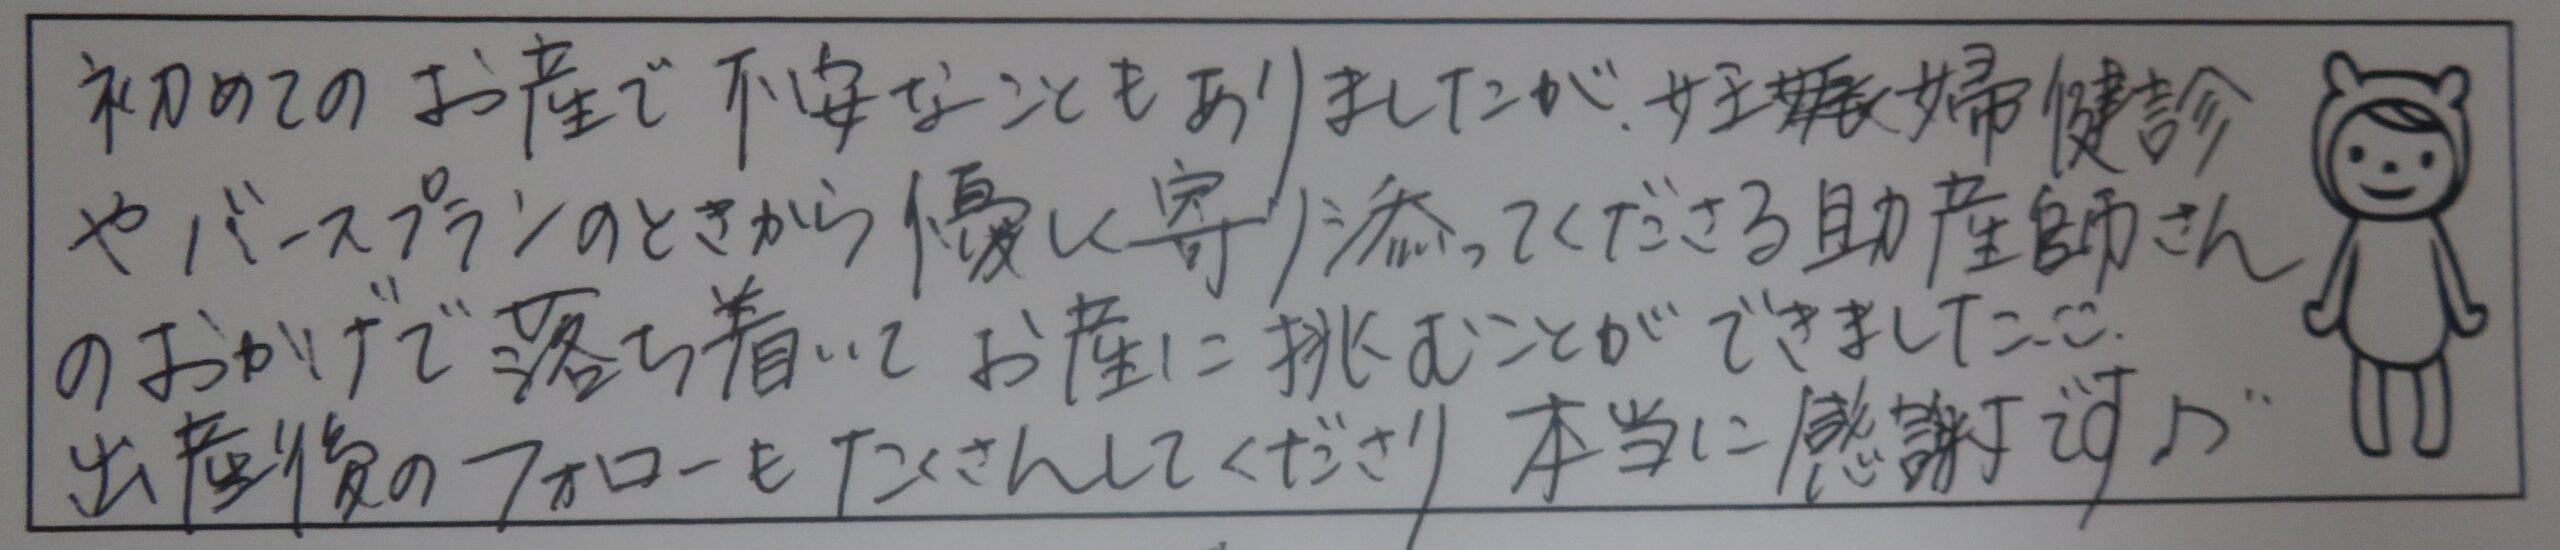 初めてのお産で不安なこともありましたが、妊娠婦健診
やバースプランのときから優しく寄り添ってくださる助産師さん
のおかげで落ち着いてお産に挑むことができました
出産後のフォローもたくさんしてくださり本当に感謝です♪